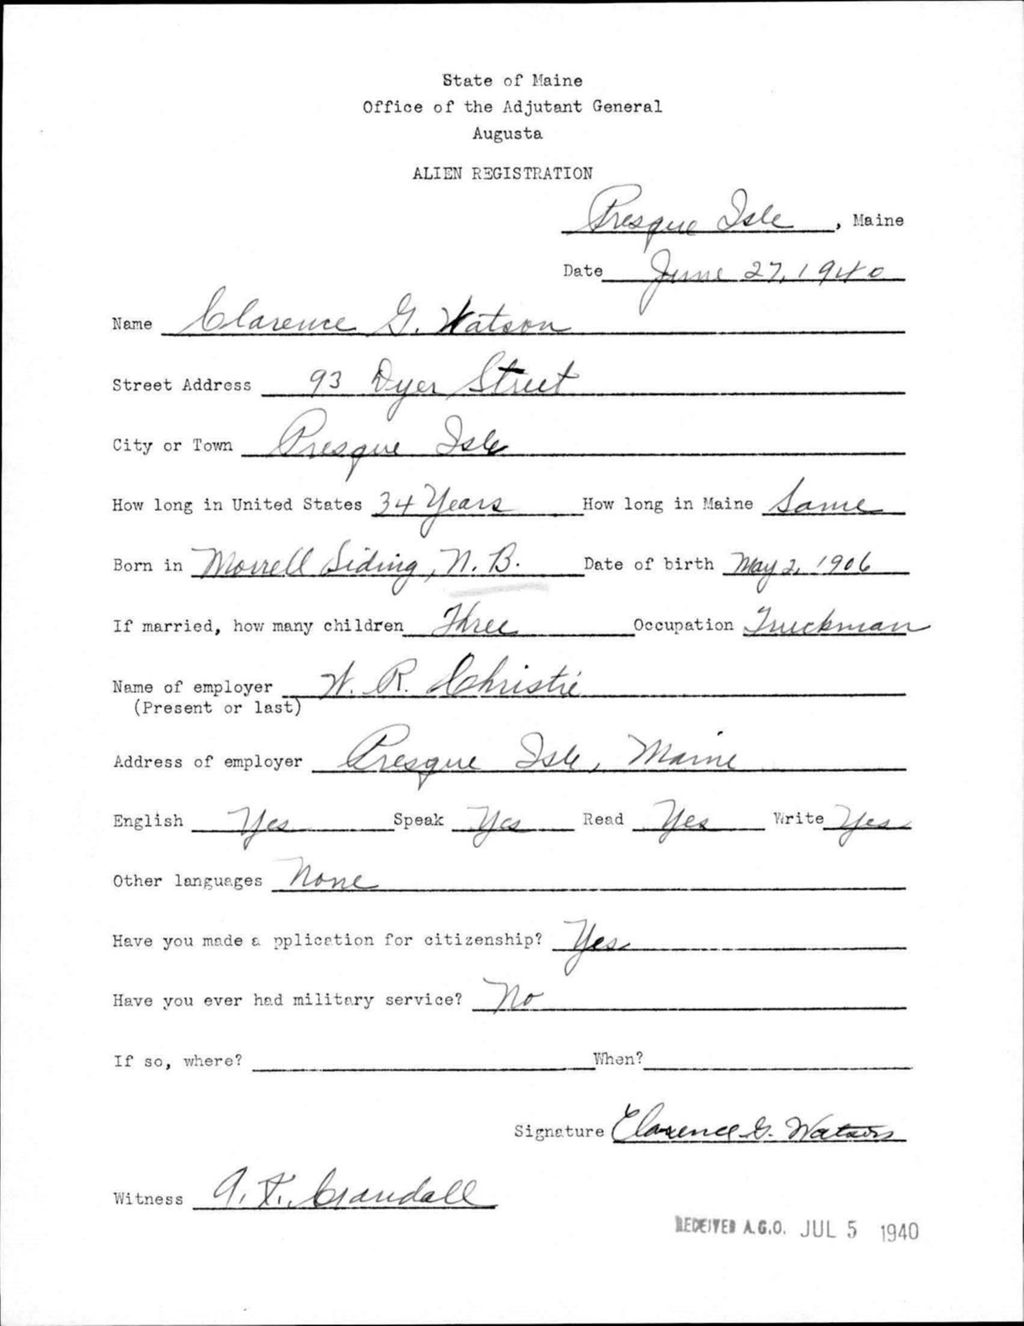 State of Maine
Office of the Adjutant General
Augusta
ALIEN REGISTRATION
Presque Isle, Maine
Date June 27, 1940
Name Clarence G. Watson
Street Address 93 Dyer Street
City or Town Presque Isle
How long in United States 34 Years How long in Maine Same
Born in Morrell Siding, N. B. Date of birth May 2, 1906
If married, how many children Three Occupation Truckman
Name of employer W. R. Christie
(Present or last)
Address of employer Presque Isle, Maine
English Yes Speak Yes Read Yes Write Yes
Other languages None
Have you made a pplication for citizenship? Yes
Have you ever had military service? No
If so, where? When?
Signature Clarence G. Watson
Witness A. F. Crandall
RECEIVED A.G.O. JUL 5 1940